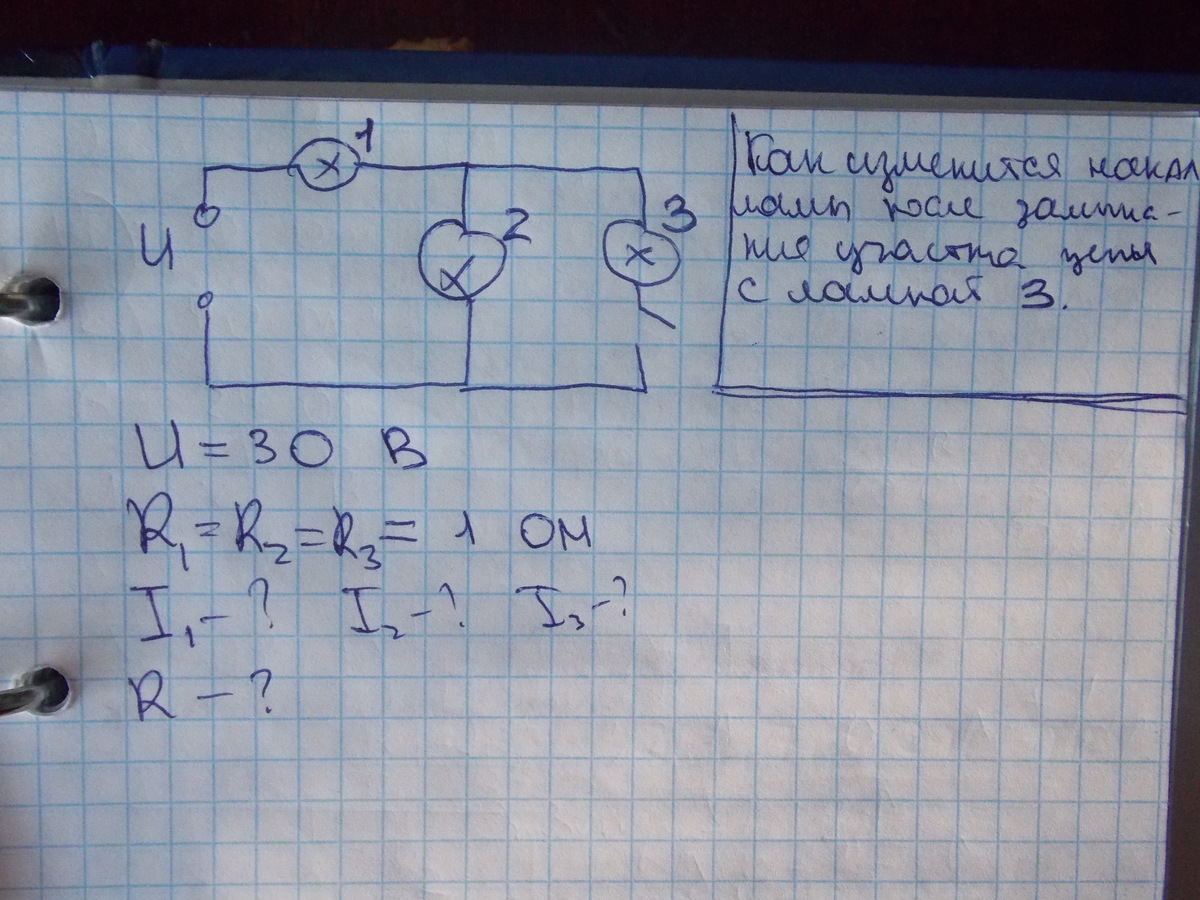 1
2
3
U
Как изменится накал
ламп после замыка-
ния участка цепи
с лампой 3.
U = 30 В
R₁ = R₂ = R₃ = 1 Ом
I₁ - ? I₂ - ? I₃ - ?
R - ?